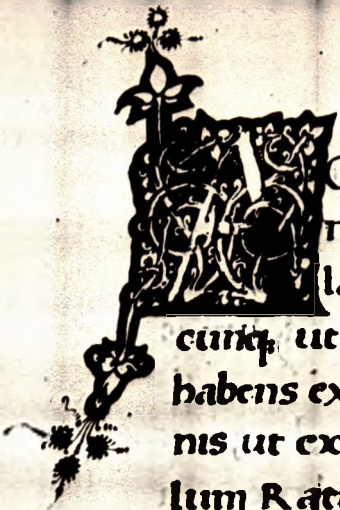 A
la
cunq; ut
habens ex
nis ut ex
lum Rati